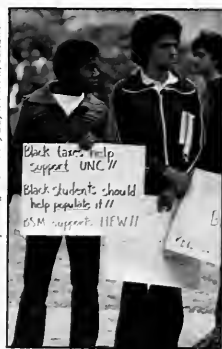 Black taxes help
support UNC!!
Black students should
help populate it!!
BSM supports HEW!!